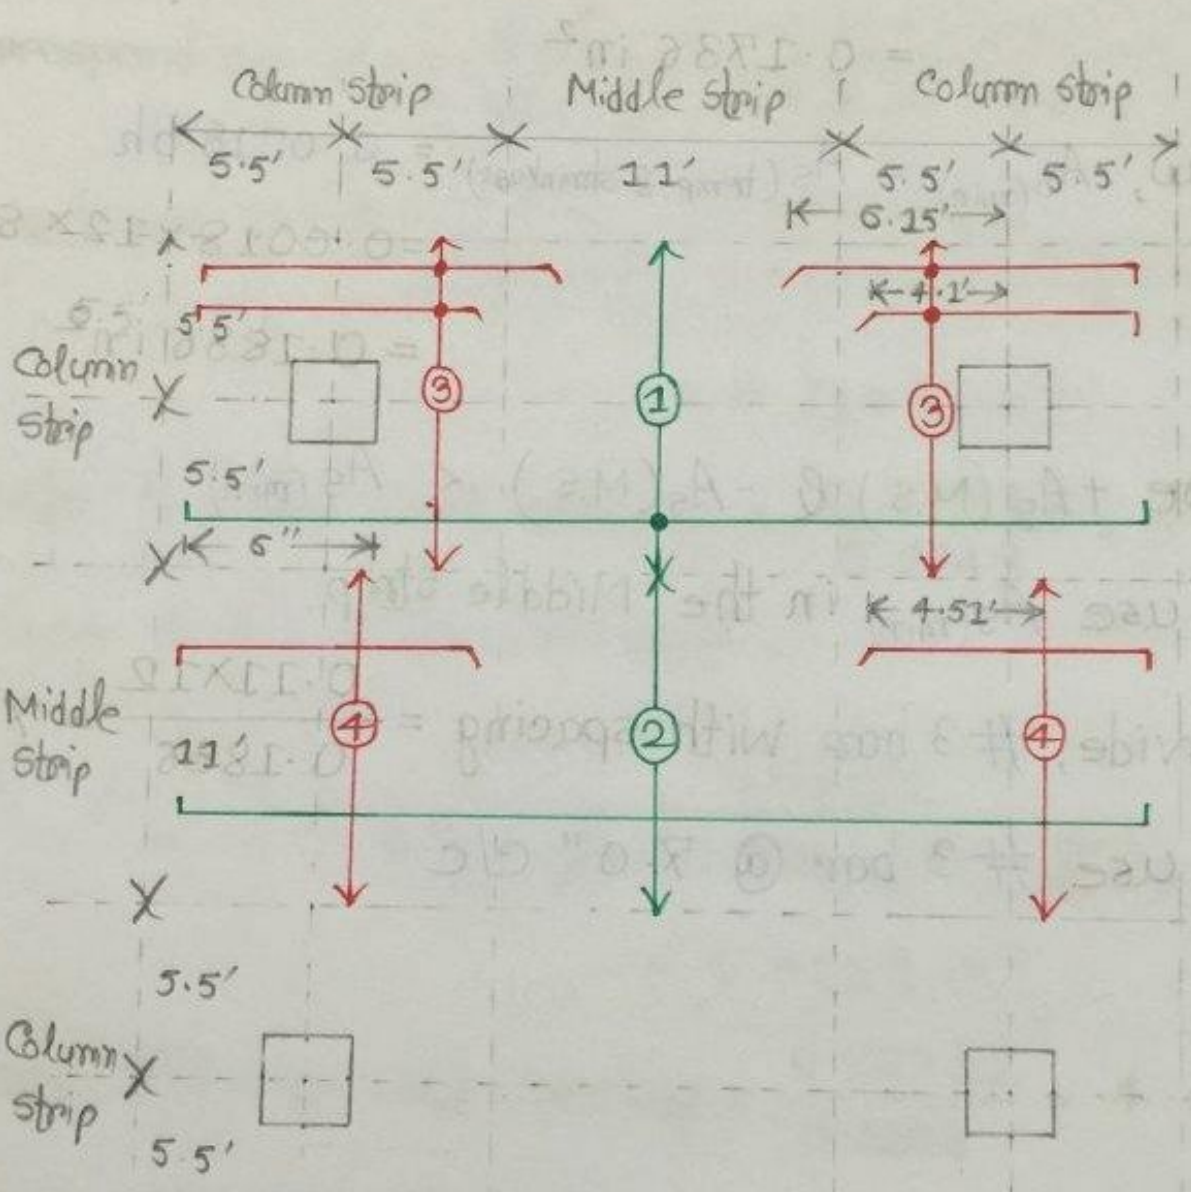 Column strip Middle strip Column strip
5.5' 5.5' 11' 5.5' 5.5'
6.25'
4.1'
5.5'
Column
strip
3 1 3
5.5'
6"
4.51'
Middle
strip
11'
4 2 4
5.5'
Column
strip
5.5'